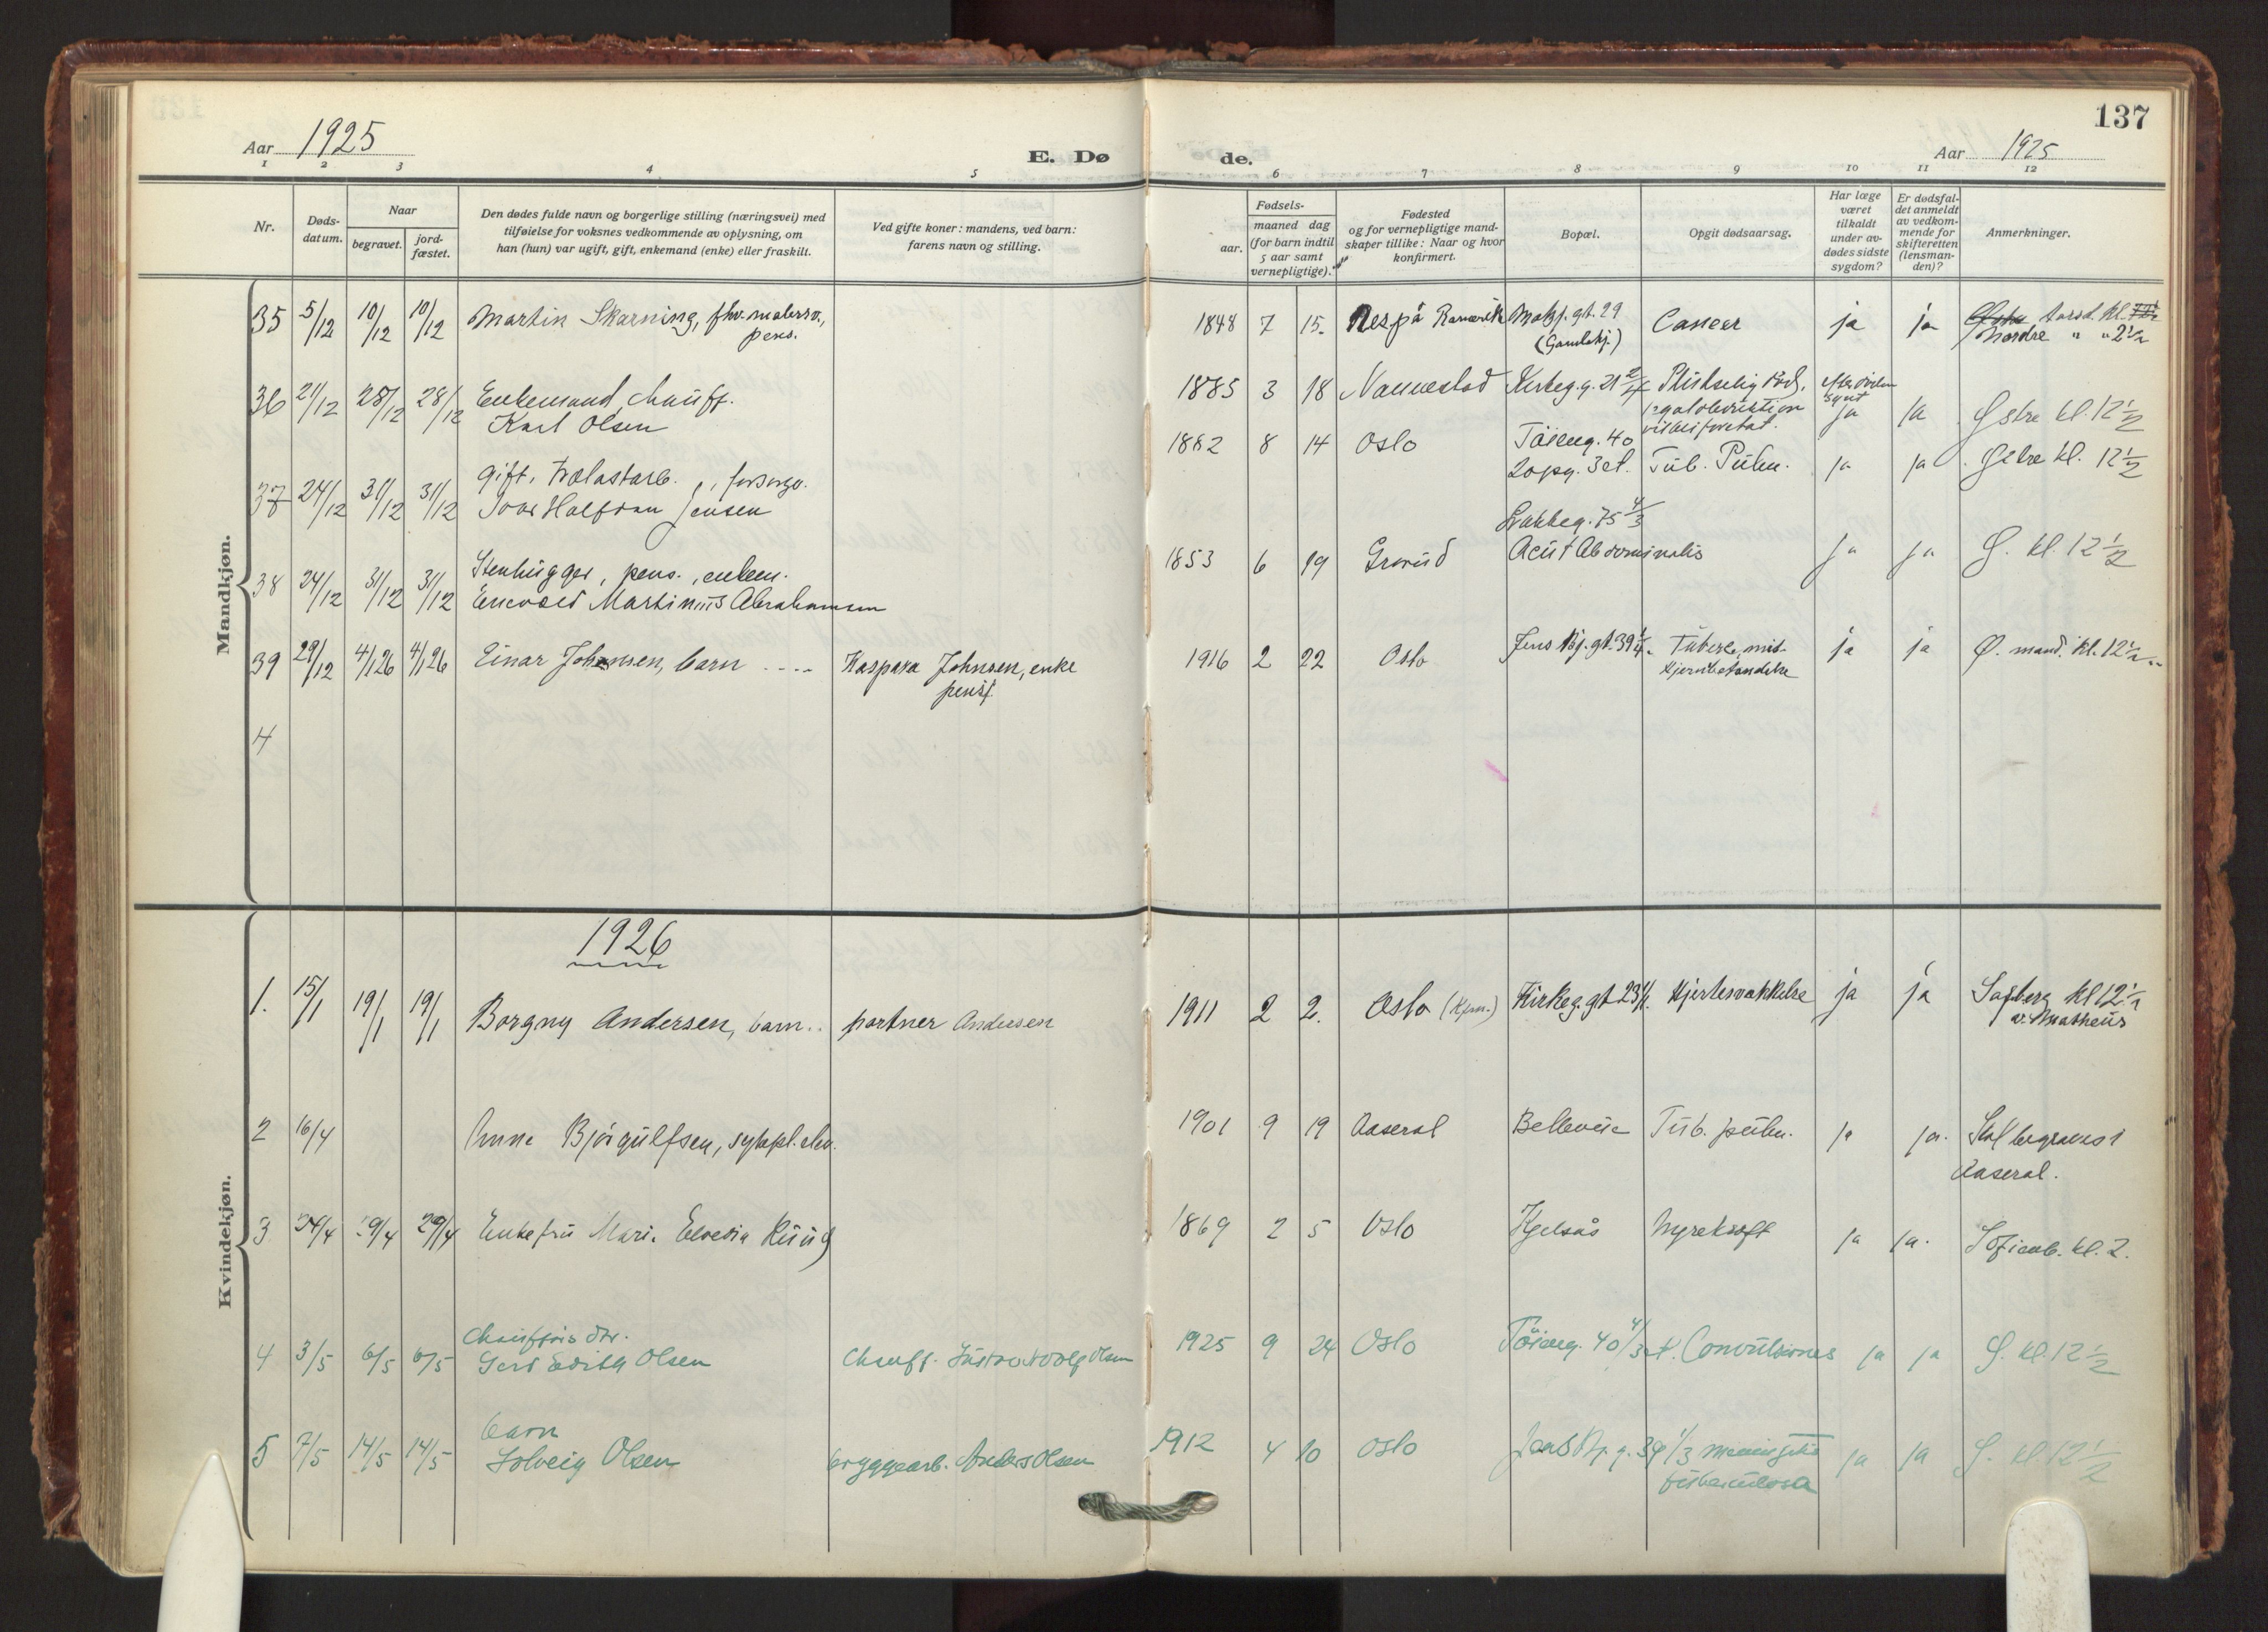 137
Aar 1925
E. Dø
de.
Aar 1925
1 2 3 4 5 6 7 8 9 10 11 12
Nr.
Døds-
datum.
Naar
begravet.
jord-
fæstet.
Den dødes fulde navn og borgerlige stilling (næringsvei) med
tilføielse for voksnes vedkommende av oplysning, om
han (hun) var ugift, gift, enkemand (enke) eller fraskilt.
Ved gifte koner: mandens, ved barn:
farens navn og stilling.
Fødsels-
aar.
maaned dag
(for barn indtil
5 aar samt
vernepligtige).
Fødested
og for vernepligtige mand-
skaper tillike: Naar og hvor
konfirmert.
Bopæl.
Opgit dødsaarsag.
Har læge
været
tilkaldt
under av-
dødes sidste
sygdom?
Er dødsfal-
det anmeldt
av vedkom-
mende for
skifteretten
(lensman-
den)?
Anmerkninger.
Mandkjøn.
35 5/12 10/12 10/12 Martin Skarning, fhv. malersv., 1848 7 15. Nes på Romerike gt. 29 Cancer ja ja
pens. (Gamlehj.) Nordre " " 2½
36 21/12 28/12 28/12 Enkemand, chauff. 1885 3 18 Nannestad Kirkeg. g. 21 Plutselig død,
Karl Olsen ja ja Østre kl. 12½
37 24/12 31/12 31/12 gift, Trælastarb., forsørge. 1882 8 14 Oslo Töieng. 40
Ivar Halfdan Jensen 3 et. Tub. Pulm. ja ja Østre kl. 12½
38 24/12 31/12 31/12 Stenhugger, pens., enkem. 1853 6 19 Grorud Lakkeg. 75 4/3
Enevold Martinius Abrahamsen Acut Abdominalis ja ja Ø. kl. 12½
39 29/12 4/1 26 4/1 26 Einar Johnsen, barn .... Kaspara Johnsen, enke 1916 2 22 Oslo Jens Bj. gt. 39 Tuberk. ja ja Ø. mand. kl. 12½
pensj. hjernebetændelse
4
Kvindekjøn.
1926
1. 15/1 19/1 19/1 Borgny Andersen, barn.. portner Andersen 1911 2 2. Oslo (Kpm.) Kirkeg. gt 23 Hjertesvækkelse ja ja kl 12½
Matheus
2 16/4 Anne Bjørgulfsen, sykepl. elev. 1901 9 19 Aaseral Bellevue Tub. pulm. ja ja. Skal begraves i
Aaseral.
3 24/4 29/4 29/4 Enkefru Marie Elvedia Ruud 1869 2 5 Oslo Kjelsås Nyrekræft ja ja. Sofienb. kl. 2.
4 3/5 6/5 6/5 Chaufførs dtr.
Gerd Edith Olsen Chauff. Olsen 1925 9 24 Oslo Töieng. 40 4/3 et. Convulsiones ja ja Ø. kl. 12½
5 7/5 14/5 14/5 barn
Solveig Olsen bryggearb. Anders Olsen 1912 4 10 Oslo Jens Bj. g. 39 1/3 meningitis ja ja Ø. kl 12½
tuberculosa